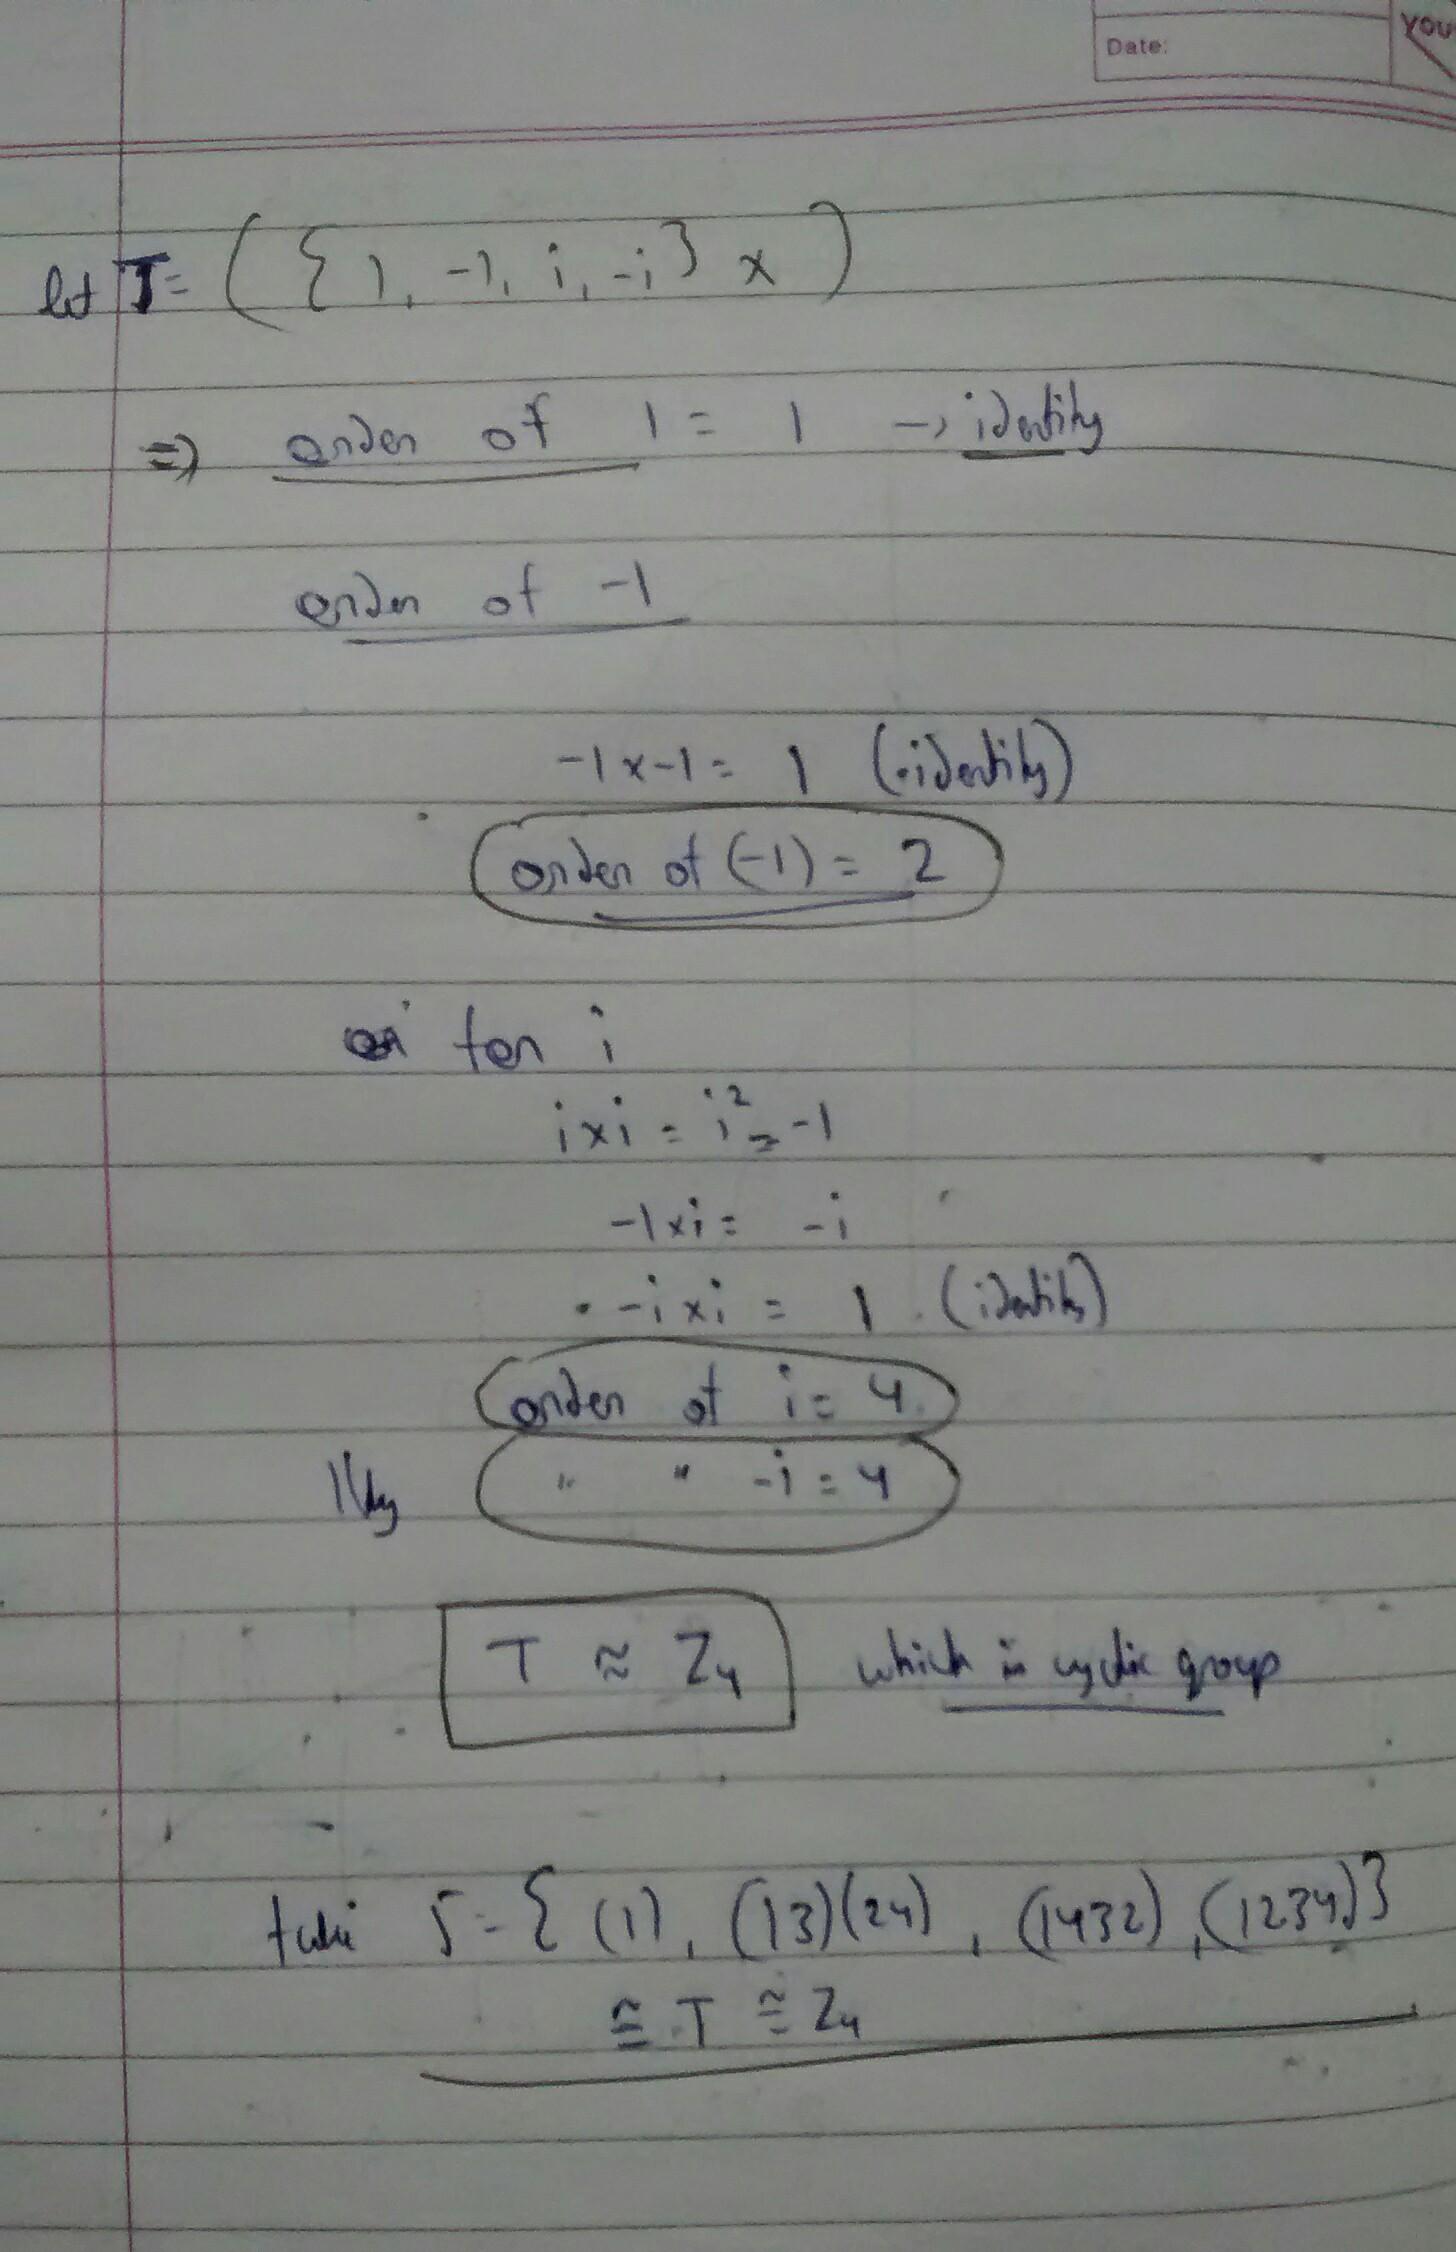 YOU
Date:
let T = ({1, -1, i, -i} x)
=> order of 1 = 1 -> identity
order of -1
-1 x -1 = 1 (identity)
order of (-1) = 2
for i
i x i = i² = -1
-1 x i = -i
-i x i = 1 (identity)
order of i = 4
||ly " " -i = 4
T ≈ Z₄ which is cyclic group
take S = { (1), (13)(24), (1432), (1234)}
≅ T ≅ Z₄